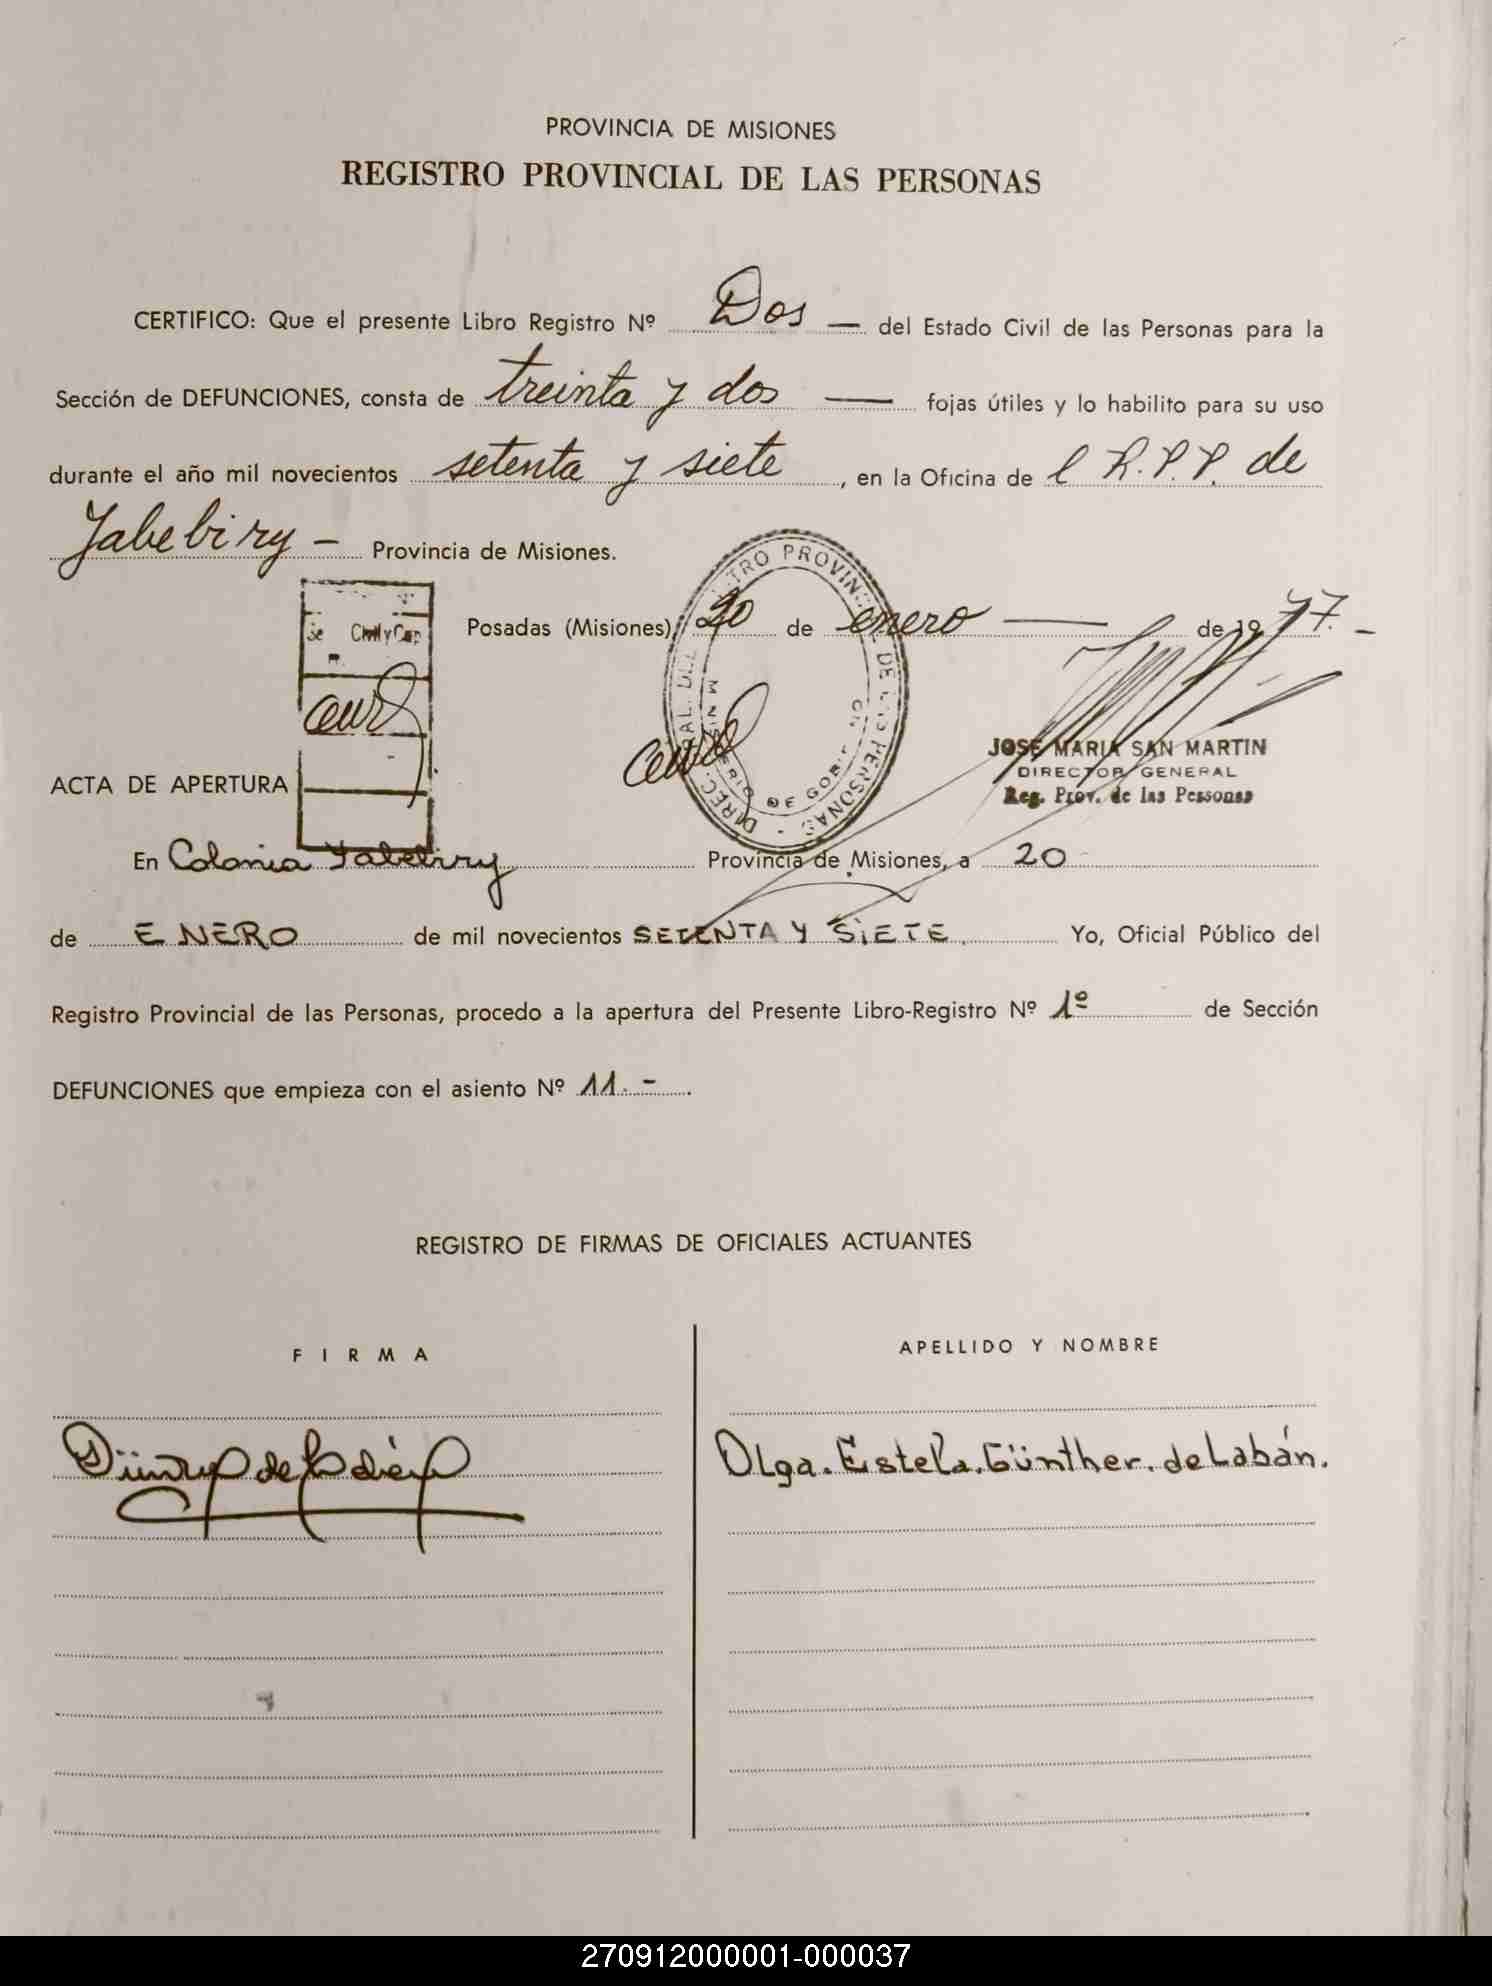 PROVINCIA DE MISIONES
REGISTRO PROVINCIAL DE LAS PERSONAS
CERTIFICO: Que el presente Libro Registro Nº Dos — del Estado Civil de las Personas para la
Sección de DEFUNCIONES, consta de treinta y dos — fojas útiles y lo habilito para su uso
durante el año mil novecientos setenta y siete, en la Oficina de l R.P.P. de
Yabebiry - Provincia de Misiones.
Posadas (Misiones), 20 de enero — de 1977.-
JOSE MARIA SAN MARTIN
DIRECTOR GENERAL
Reg. Prov. de las Personas
ACTA DE APERTURA
En Colonia Yabebiry Provincia de Misiones, a 20
de ENERO de mil novecientos SETENTA Y SIETE. Yo, Oficial Público del
Registro Provincial de las Personas, procedo a la apertura del Presente Libro-Registro Nº 1º de Sección
DEFUNCIONES que empieza con el asiento Nº 11.-.
REGISTRO DE FIRMAS DE OFICIALES ACTUANTES
FIRMA
APELLIDO Y NOMBRE
Olga. Estela. Günther. de Labán.
270912000001-000037